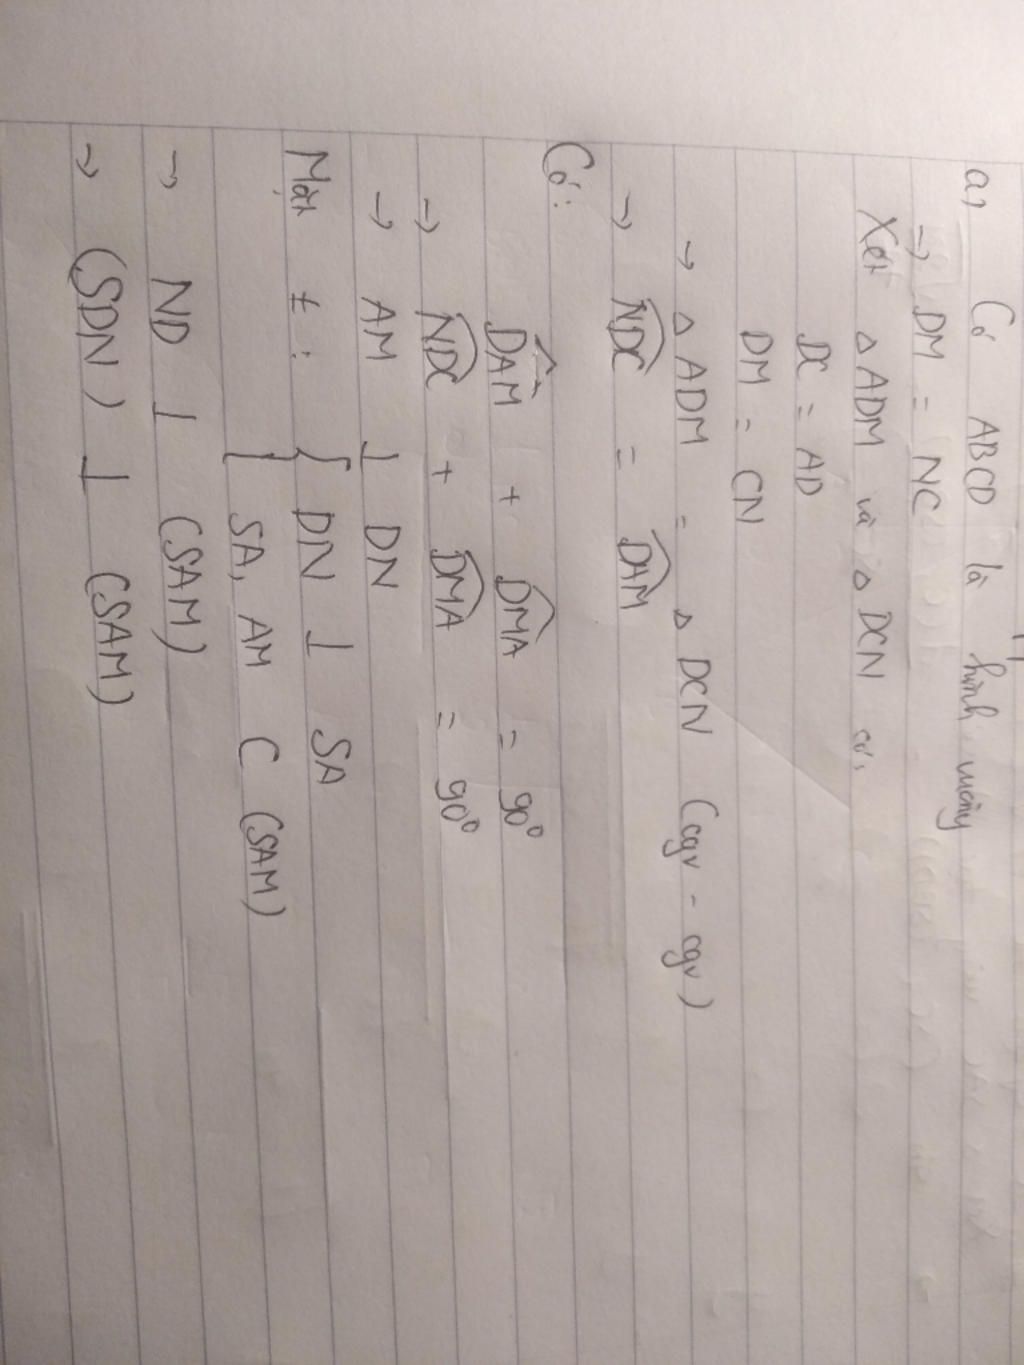 a, Có ABCD là hình vuông
→ DM = NC
Xét △ ADM và △ DCN có,
DC = AD
DM = CN
→ △ ADM = △ DCN (cgv - cgv)
→ NDC = DAM
Có:
DAM + DMA = 90°
→ NDC + DMA = 90°
→ AM ⊥ DN
Mặt ≠ : { DN ⊥ SA
SA, AM ⊂ (SAM)
→ ND ⊥ (SAM)
→ (SDN) ⊥ (SAM)